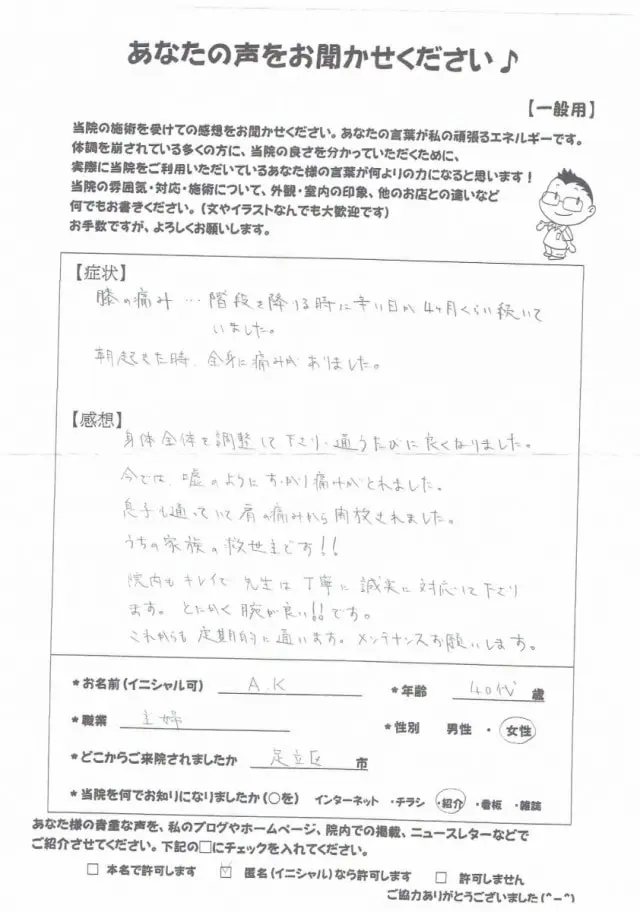 あなたの声をお聞かせください♪
【一般用】
当院の施術を受けての感想をお聞かせください。あなたの言葉が私の頑張るエネルギーです。
体調を崩されている多くの方に、当院の良さを分かっていただくために、
実際に当院をご利用いただいているあなた様の言葉が何よりの力になると思います!
当院の雰囲気・対応・施術について、外観・室内の印象、他のお店との違いなど
何でもお書きください。(文やイラストなんでも大歓迎です)
お手数ですが、よろしくお願いします。
【症状】
膝の痛み … 階段を降りる時に辛い日が4ヶ月くらい続いて
いました。
朝起きた時、全身に痛みがありました。
【感想】
身体全体を調整して下さり、通うたびに良くなりました。
今では、嘘のようにすっかり痛みがとれました。
息子も通っていて肩の痛みから開放されました。
うちの家族の救世主です!!
院内もキレイで先生は丁寧に誠実に対応して下さり
ます。とにかく腕が良い!!です。
これからも定期的に通います。メンテナンスお願いします。
*お名前(イニシャル可) A.K *年齢 40代 歳
*職業 主婦 *性別 男性 ・ 女性
*どこからご来院されましたか 足立区 市
*当院を何でお知りになりましたか(○を) インターネット ・チラシ ・紹介 ・看板 ・雑誌
あなた様の貴重な声を、私のブログやホームページ、院内での掲載、ニュースレターなどで
ご紹介させてください。下記の□にチェックを入れてください。
□ 本名で許可します ☑ 匿名(イニシャル)なら許可します □ 許可しません
ご協力ありがとうございました(^-^)